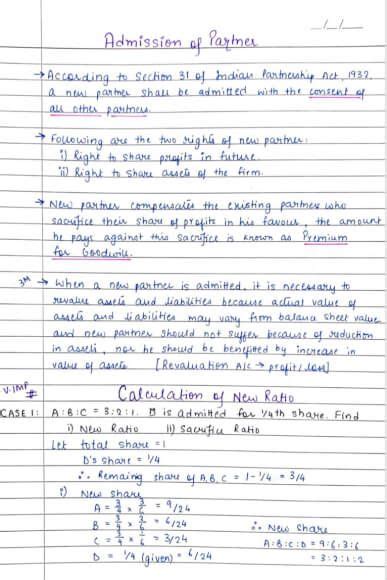 __/__/__
Admission of Partner
→ According to Section 31 of Indian Partnership Act, 1932,
a new partner shall be admitted with the consent of
all other partners.
→ Following are the two rights of new partner:
i) Right to share profits in future.
ii) Right to share assets of the firm.
→ New partner compensates the existing partners who
sacrifice their share of profits in his favour, the amount
he pays against this sacrifice is known as Premium
for Goodwill.
3M → When a new partner is admitted, it is necessary to
revalue assets and liabilities because actual value of
assets and liabilities may vary from balance sheet value
and new partner should not suffer because of reduction
in assets, nor he should be benefited by increase in
value of assets [Revaluation A/c → profit/loss]
V.IMP # Calculation of New Ratio
CASE 1: A:B:C = 3:2:1. D is admitted for 1/4th share. Find
i) New Ratio ii) Sacrifice Ratio
Let total share = 1
D's share = 1/4
∴ Remaing share of A, B, C = 1 - 1/4 = 3/4
i) New share
A = 3/4 × 3/6 = 9/24
B = 3/4 × 2/6 = 6/24
C = 3/4 × 1/6 = 3/24 ∴ New Share
A:B:C:D = 9:6:3:6
D = 1/4 (given) = 6/24 = 3:2:1:2